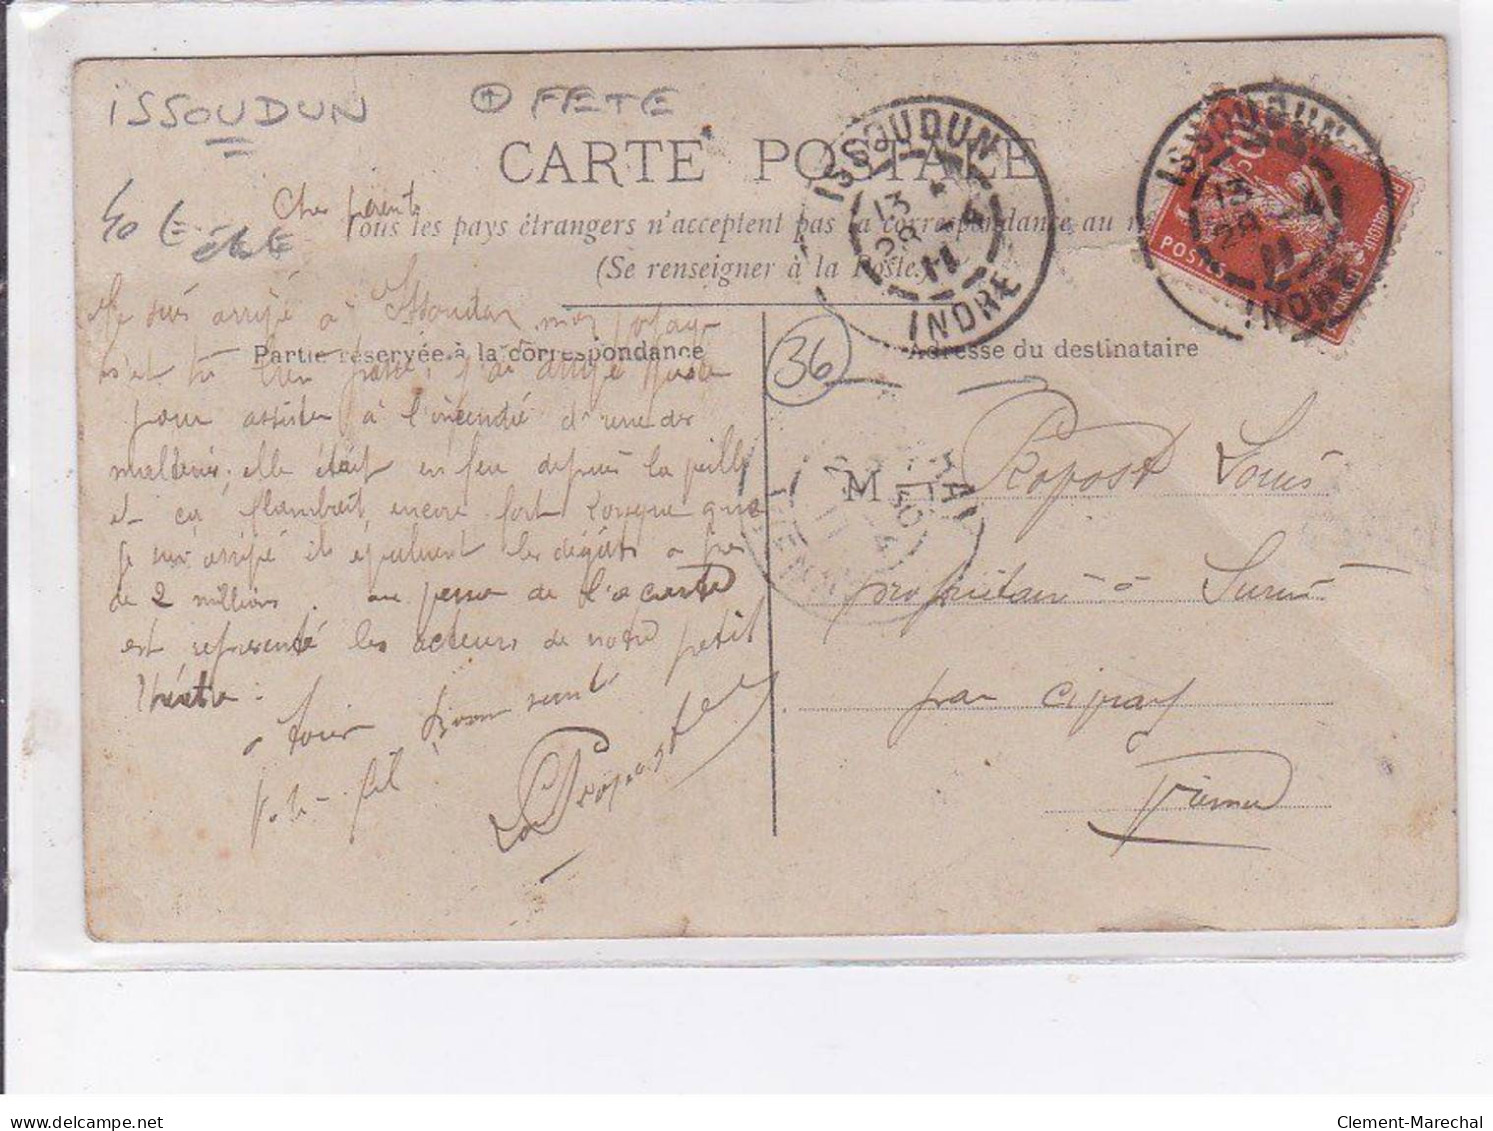 ISSOUDUN
+ FETE
CARTE POSTALE
40 €
Chers parents
Tous les pays étrangers n'acceptent pas la correspondance au
(Se renseigner à la Poste)
ISSOUDUN
13
29 4
11
INDRE
ISSOUDUN
13
29 4
11
INDRE
10 c
POSTES
Je suis arrivé à Issoudun mon voyage
Partie réservée à la correspondance
36
Adresse du destinataire
s'est très bien passé; j'ai arrivé
pour assister à l'incendie d'une des
malteries; elle était en feu depuis la veille
et ça flambait encore fort lorsque que
je suis arrivé ils évaluent les dégâts a près
de 2 millions. au verso de la carte
est représenté les acteurs de notre petit
théâtre.
M Ropost Louis
propriétaire à Surin
par Civray
Vienne
fils
Clement-Marechal
delcampe.net